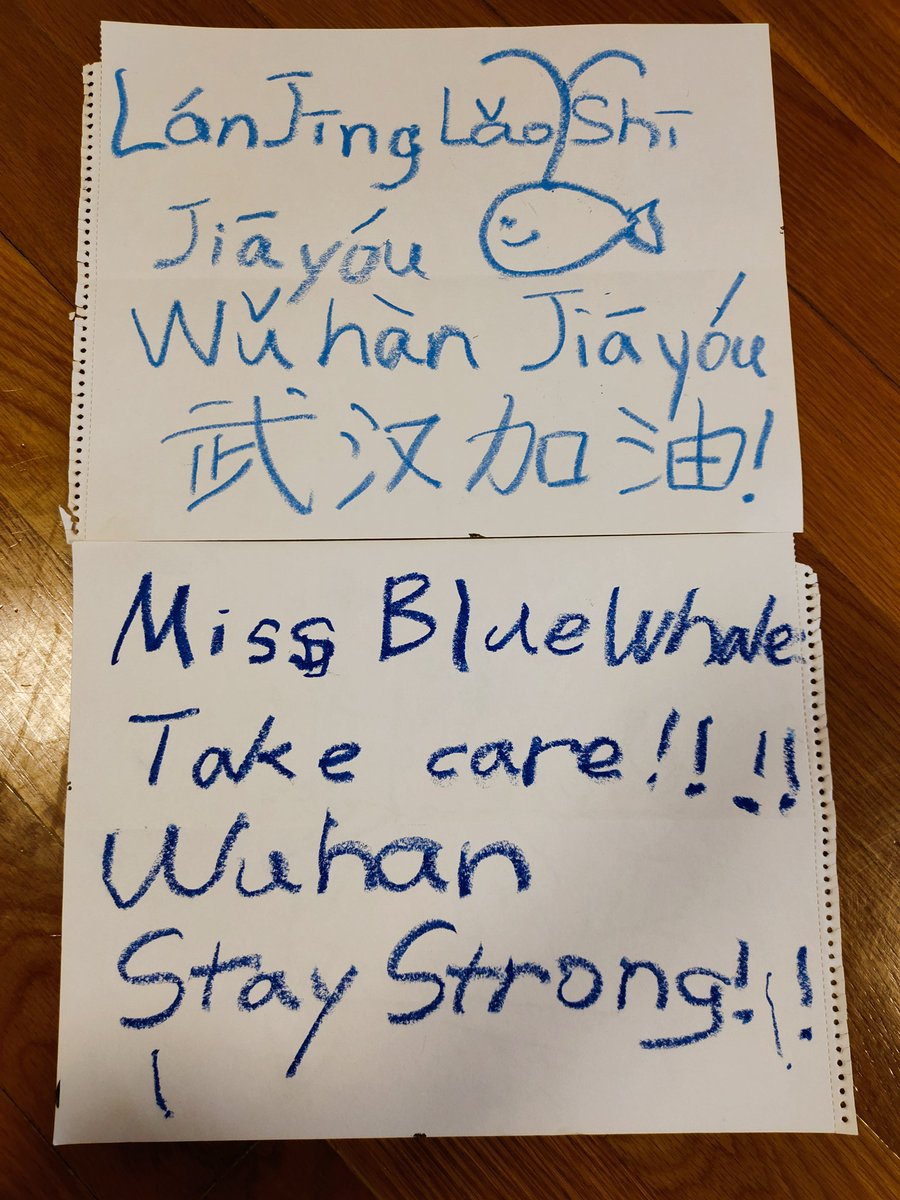 LánJīng Lǎo Shī
Jiāyóu
Wǔhàn Jiāyóu
武汉加油!
Miss Blue Whale
Take care!!!!
Wuhan
Stay Strong!!!
!